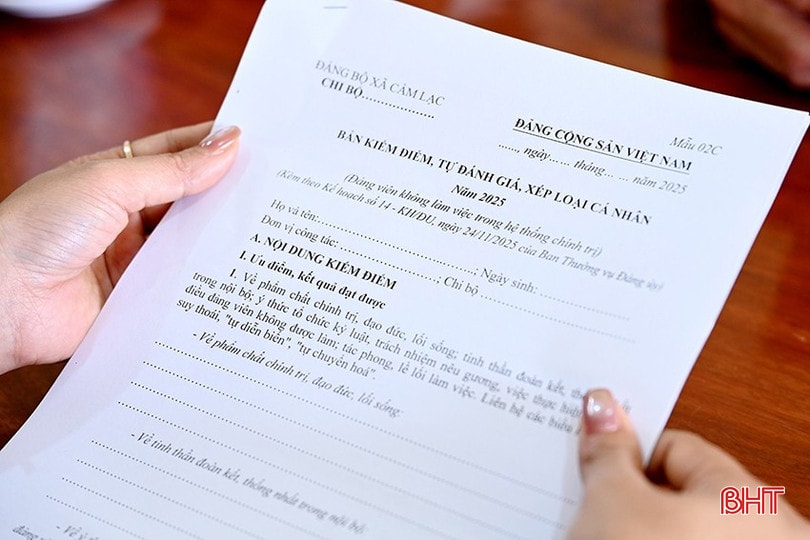 ĐẢNG BỘ XÃ CẨM LẠC
CHI BỘ....................
ĐẢNG CỘNG SẢN VIỆT NAM
Mẫu 02C
......, ngày...... tháng... ... năm 2025
BẢN KIỂM ĐIỂM, TỰ ĐÁNH GIÁ, XẾP LOẠI CÁ NHÂN
Năm 2025
(Đảng viên không làm việc trong hệ thống chính trị)
(Kèm theo Kế hoạch số 14 - KH/ĐU, ngày 24/11/2025 của Ban Thường vụ Đảng ủy)
Họ và tên:........................................ Ngày sinh: ........................
Đơn vị công tác: ................................, Chi bộ ........................
A. NỘI DUNG KIỂM ĐIỂM
I. Ưu điểm, kết quả đạt được
1. Về phẩm chất chính trị, đạo đức, lối sống; tinh thần đoàn kết,
trong nội bộ; ý thức tổ chức kỷ luật, trách nhiệm nêu gương, việc thực hiện
điều đảng viên không được làm; tác phong, lề lối làm việc. Liên hệ các biểu
suy thoái, "tự diễn biến", "tự chuyển hoá".
- Về phẩm chất chính trị, đạo đức, lối sống:
- Về tinh thần đoàn kết, thống nhất trong nội bộ:
- Về ý
BHT